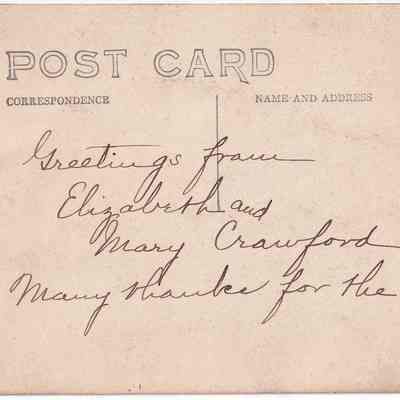 POST CARD
CORRESPONDENCE NAME AND ADDRESS
Greetings from
Elizabeth and
Mary Crawford
Many thanks for the